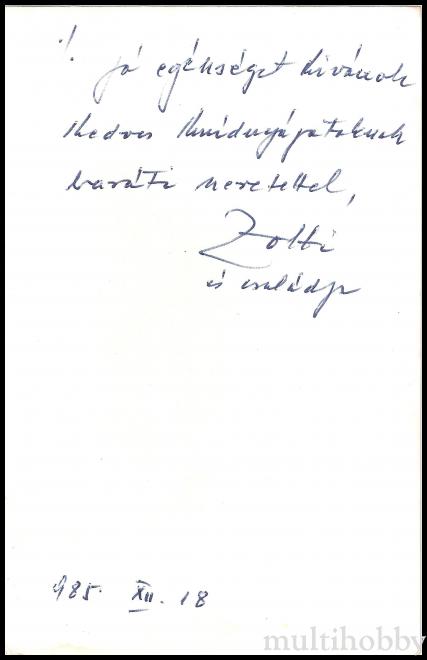 !
jó egészséget kívánok
Kedves Mindnyájatoknak
baráti szeretettel,
Zolti
és családja
985. XII. 18
multihobby